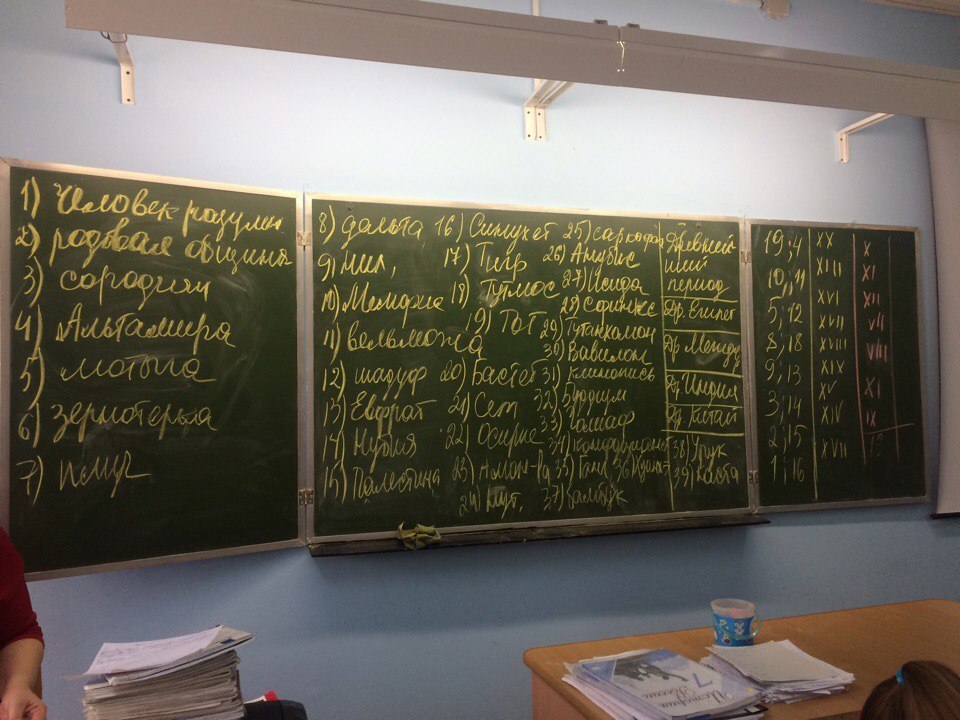 1) Человек разумн.
2) родовая община
3) сородичи
4) Альтамира
5) мотыга
6) зернотерка
7)
8) дельта
9) Нил,
10) Мемфис
11) вельможа
12) шадуф
13) Евфрат
14) Нубия
15) Палестина
16)
17) Тигр
18) Тутмос
19) Тот
20) Бастет
21) Сет
22) Осирис
23) Амон-Ра
24)
25) саркофаг
26) Анубис
27) Исида
28) Сфинкс
29) Тутанхамон
30) Вавилон
31) клинопись
32)
33)
34) Конфуцианст
35) Ганг
36)
37) бамбук
Древней
ший
период
Др. Египет
Др. Между
Др. Индия
Др. Китай
38) Урук
39) Каста
19; 4 XX X
10; 11 XIII XI
5; 12 XVI XII
8; 18 XVII VII
9; 13 XIX VIII
3; 14 XV XI
2; 15 XIV IX
1; 16 XVII
7
История
России